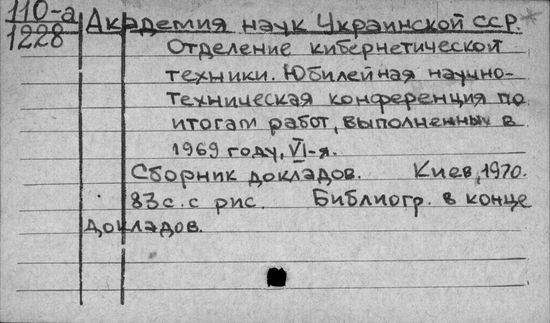 110-а
1228
Академия наук Украинской ССР.*
Отделение кибернетической
техники. Юбилейная научно-
техническая конференция по
итогам работ, выполненных в
1969 году, VI-я.
Сборник докладов. Киев, 1970.
83 с. с рис. Библиогр. в конце
докладов.